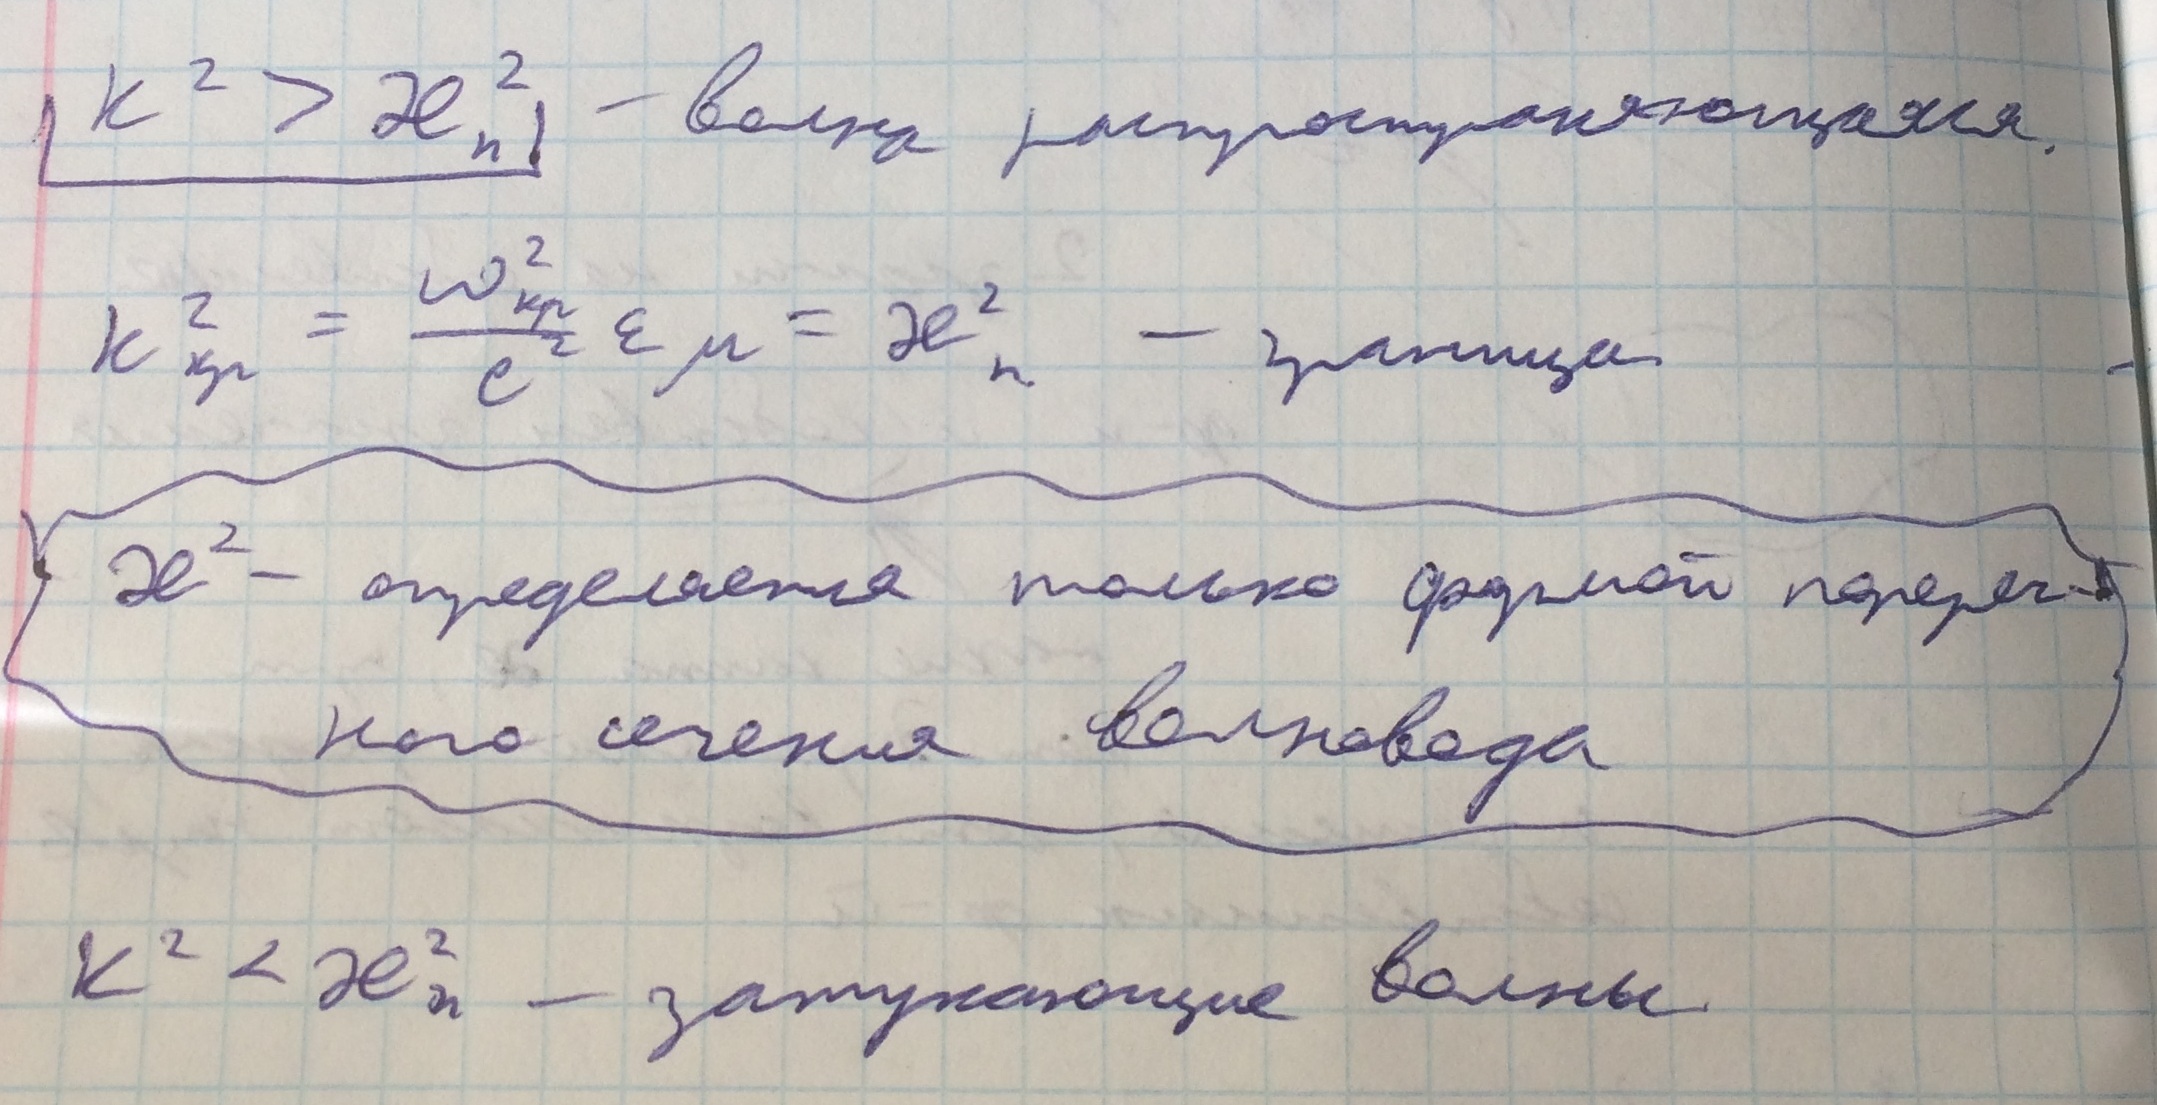 k² > æ²ₙ – волна распространяющаяся.
k²кр = ω²кр/c² εμ = æ²ₙ – граница
æ² – определяется только формой попереч-
ного сечения волновода
k² < æ²ₙ – затухающие волны